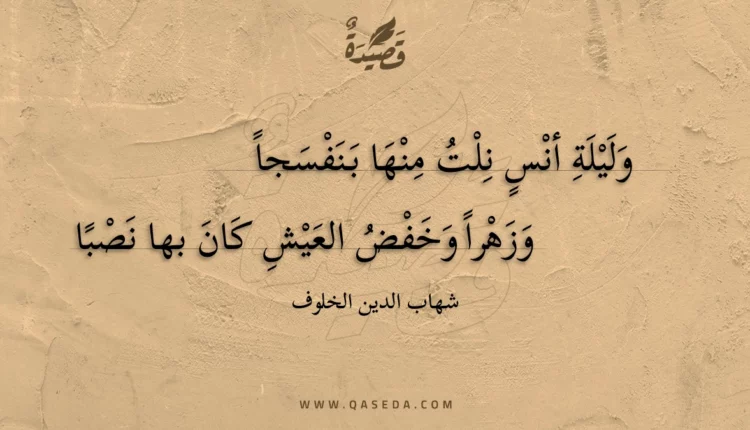 قَصِيدَةٌ
وَلَيْلَةِ أنْسٍ نِلْتُ مِنْهَا بَنَفْسَجاً
وَزَهْراً وَخَفْضُ العَيْشِ كَانَ بها نَصْبًا
شهاب الدين الخلوف
WWW.QASEDA.COM